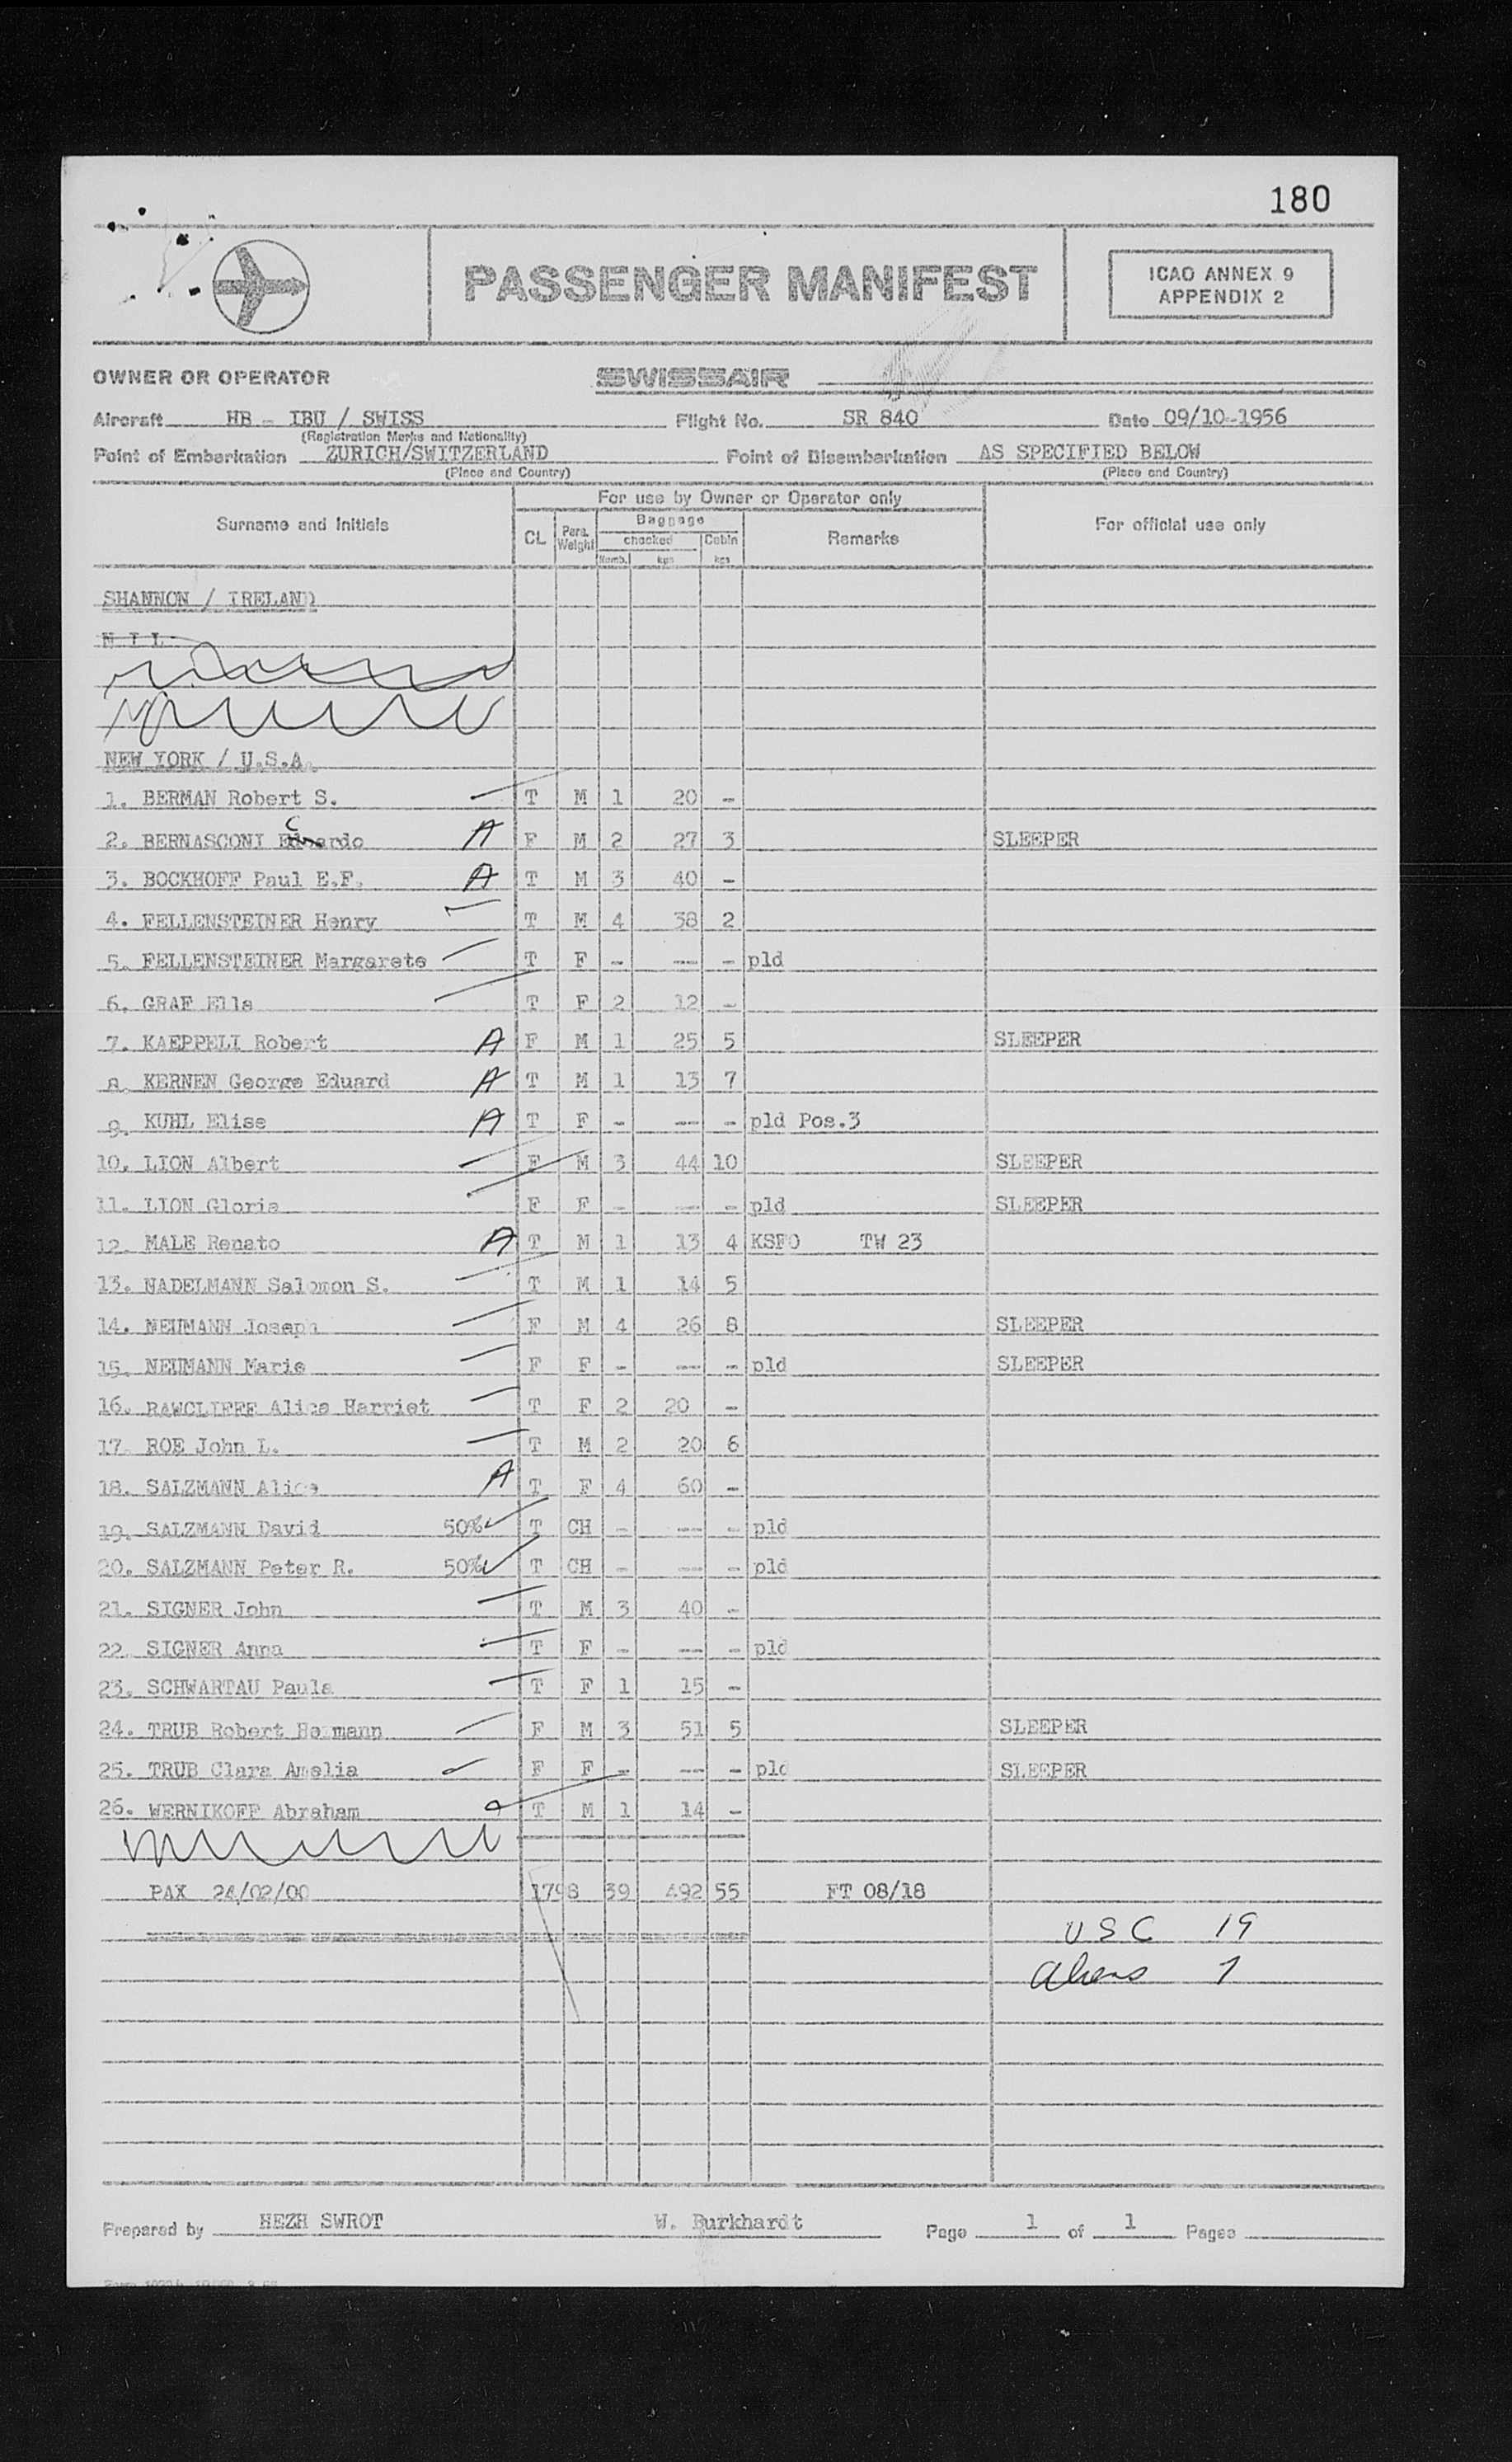 180
PASSENGER MANIFEST
ICAO ANNEX 9
APPENDIX 2
OWNER OR OPERATOR SWISSAIR
Aircraft HB - IBU / SWISS Flight No. SR 840 Date 09/10-1956
(Registration Marks and Nationality)
Point of Embarkation ZURICH/SWITZERLAND Point of Disembarkation AS SPECIFIED BELOW
(Place and Country) (Place and Country)
For use by Owner or Operator only
Surname and Initials CL Pers. Weight Baggage checked Numb. kgs Cabin kgs Remarks For official use only
SHANNON / IRELAND
N I L
NEW YORK / U.S.A.
1. BERMAN Robert S. T M 1 20 -
2. BERNASCONI Eduardo C A F M 2 27 3 SLEEPER
3. BOCKHOFF Paul E.F. A T M 3 40 -
4. FELLENSTEINER Henry T M 4 38 2
5. FELLENSTEINER Margarete T F - -- - pld
6. GRAF Ella T F 2 12 -
7. KAEPPELI Robert A F M 1 25 5 SLEEPER
8. KERNEN George Eduard A T M 1 13 7
9. KUHL Elise A T F - -- - pld Pos.3
10. LION Albert F M 3 44 10 SLEEPER
11. LION Gloria F F - -- - pld SLEEPER
12. MALE Renato A T M 1 13 4 KSFO TW 23
13. NADELMANN Salomon S. T M 1 14 5
14. NEUMANN Joseph F M 4 26 8 SLEEPER
15. NEUMANN Marie F F - -- - pld SLEEPER
16. RAWCLIFFE Alice Harriet T F 2 20 -
17. ROE John L. T M 2 20 6
18. SALZMANN Alice A T F 4 60 -
19. SALZMANN David 50% T CH - -- - pld
20. SALZMANN Peter R. 50% T CH - -- - pld
21. SIGNER John T M 3 40 -
22. SIGNER Anna T F - -- - pld
23. SCHWARTAU Paula T F 1 15 -
24. TRUB Robert Hermann F M 3 51 5 SLEEPER
25. TRUB Clara Amelia F F - -- - pld SLEEPER
26. WERNIKOFF Abraham T M 1 14 -
PAX 24/02/00 1798 39 492 55 FT 08/18
USC 19
Aliens 7
Prepared by HEZH SWROT W. Burkhardt Page 1 of 1 Pages